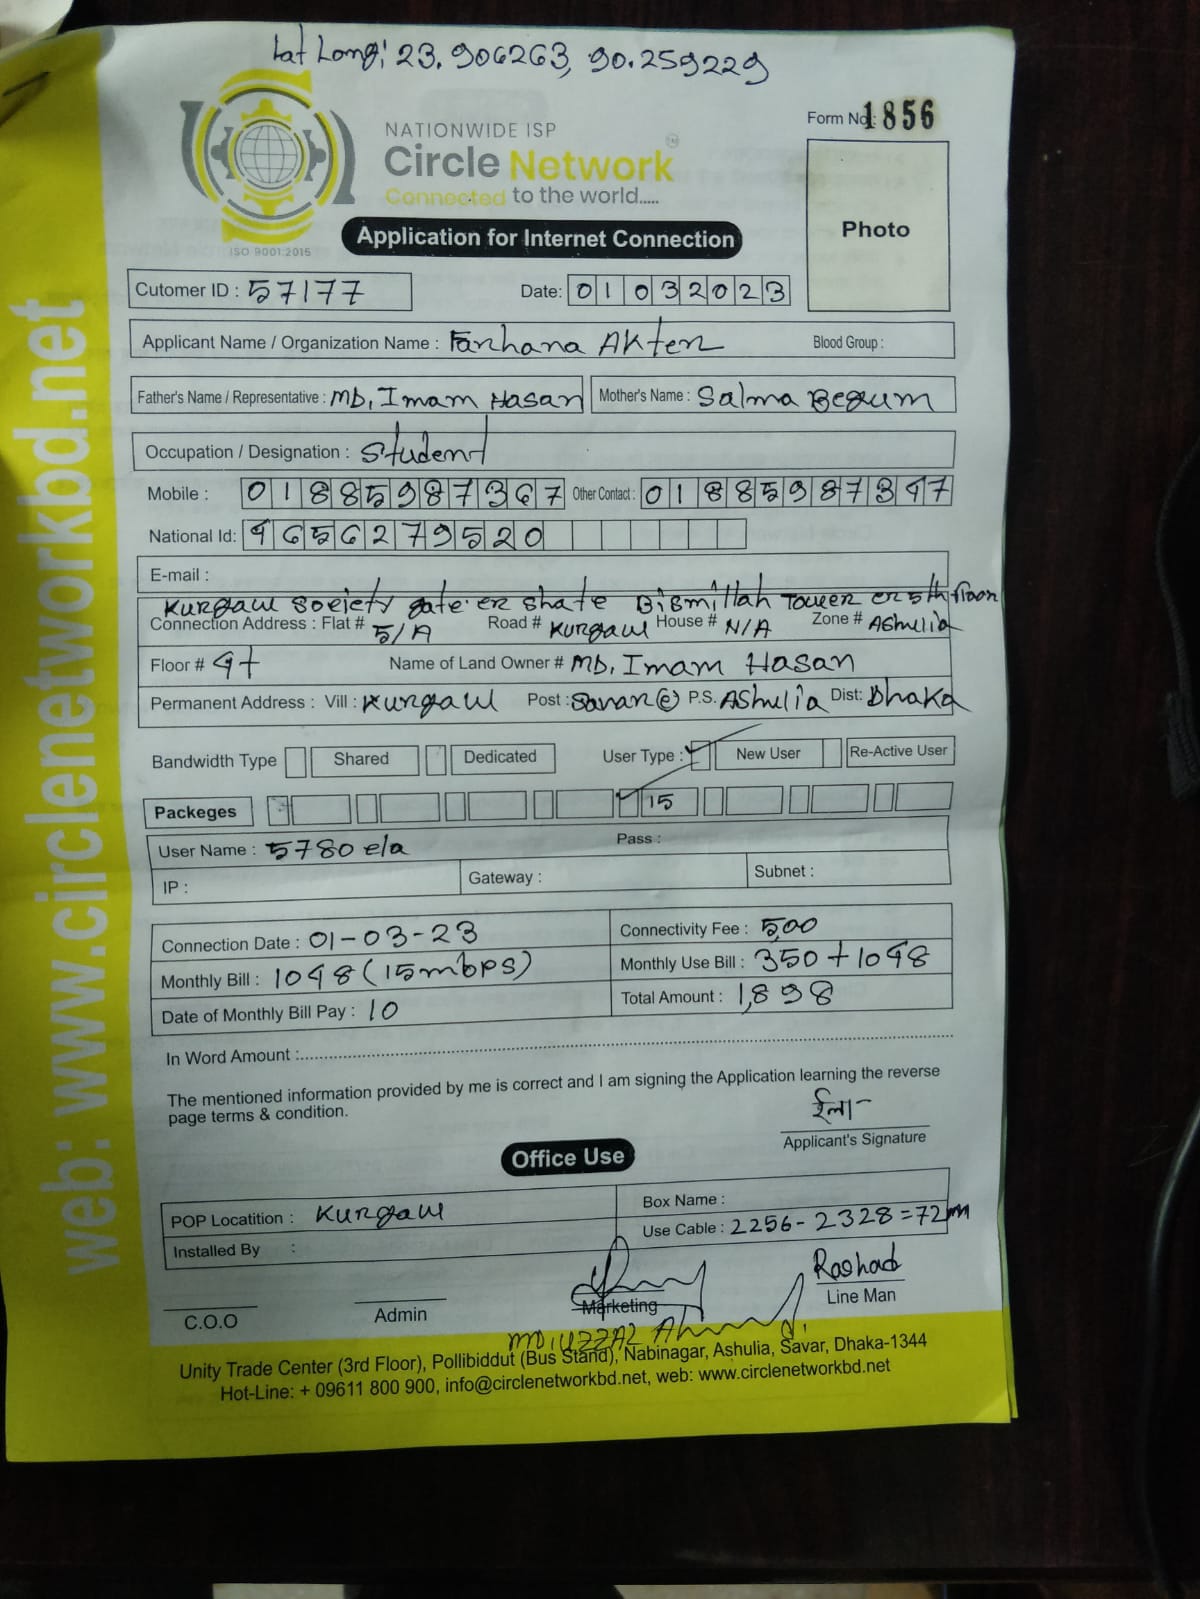 Lat Long: 23.906263, 90.259229
NATIONWIDE ISP
Circle Network
Connected to the world.....
ISO 9001:2015
Form No.: 1856
Photo
Application for Internet Connection
Cutomer ID : 57177
Date: 01032023
Applicant Name / Organization Name : Farhana Akter Blood Group :
Father's Name / Representative : MD. Imam Hasan Mother's Name : Salma Begum
Occupation / Designation : Student
Mobile : 01885987367 Other Contact : 01885987347
National Id: 4656279520
E-mail :
Kurgaw Society gate er shate Bismillah Tower er 5th floor
Connection Address : Flat # 5/A Road # Kurgaw House # N/A Zone # Ashulia
Floor # 4t Name of Land Owner # MD. Imam Hasan
Permanent Address : Vill : Kurgaw Post : Savar P.S. Ashulia Dist: Dhaka
Bandwidth Type Shared Dedicated User Type : New User Re-Active User
Packeges 15
User Name : 5780 ela Pass :
IP : Gateway : Subnet :
Connection Date : 01-03-23 Connectivity Fee : 500
Monthly Bill : 1048 (15mbps) Monthly Use Bill : 350 + 1048
Date of Monthly Bill Pay : 10 Total Amount : 1,898
In Word Amount :
The mentioned information provided by me is correct and I am signing the Application learning the reverse
page terms & condition.
ইলা
Applicant's Signature
Office Use
POP Locatition : Kurgaw Box Name :
Installed By : Use Cable : 2256-2328=72m
Rashad
C.O.O Admin Marketing Line Man
MD. UZZAL Ahmed
Unity Trade Center (3rd Floor), Pollibiddut (Bus Stand), Nabinagar, Ashulia, Savar, Dhaka-1344
Hot-Line: + 09611 800 900, info@circlenetworkbd.net, web: www.circlenetworkbd.net
web: www.circlenetworkbd.net